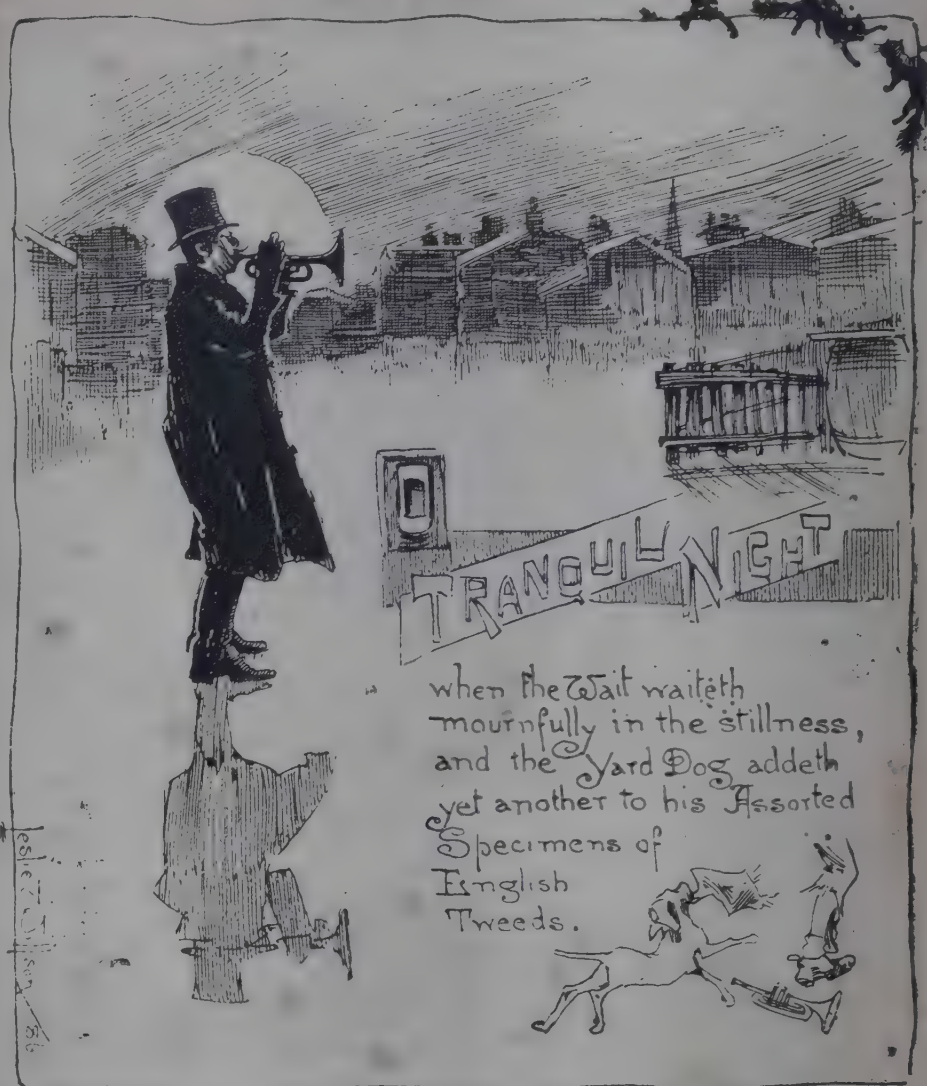 TRANQUIL NIGHT
when the Wait waiteth
mournfully in the stillness,
and the Yard Dog addeth
yet another to his Assorted
Specimens of
English
Tweeds.
Leslie 86